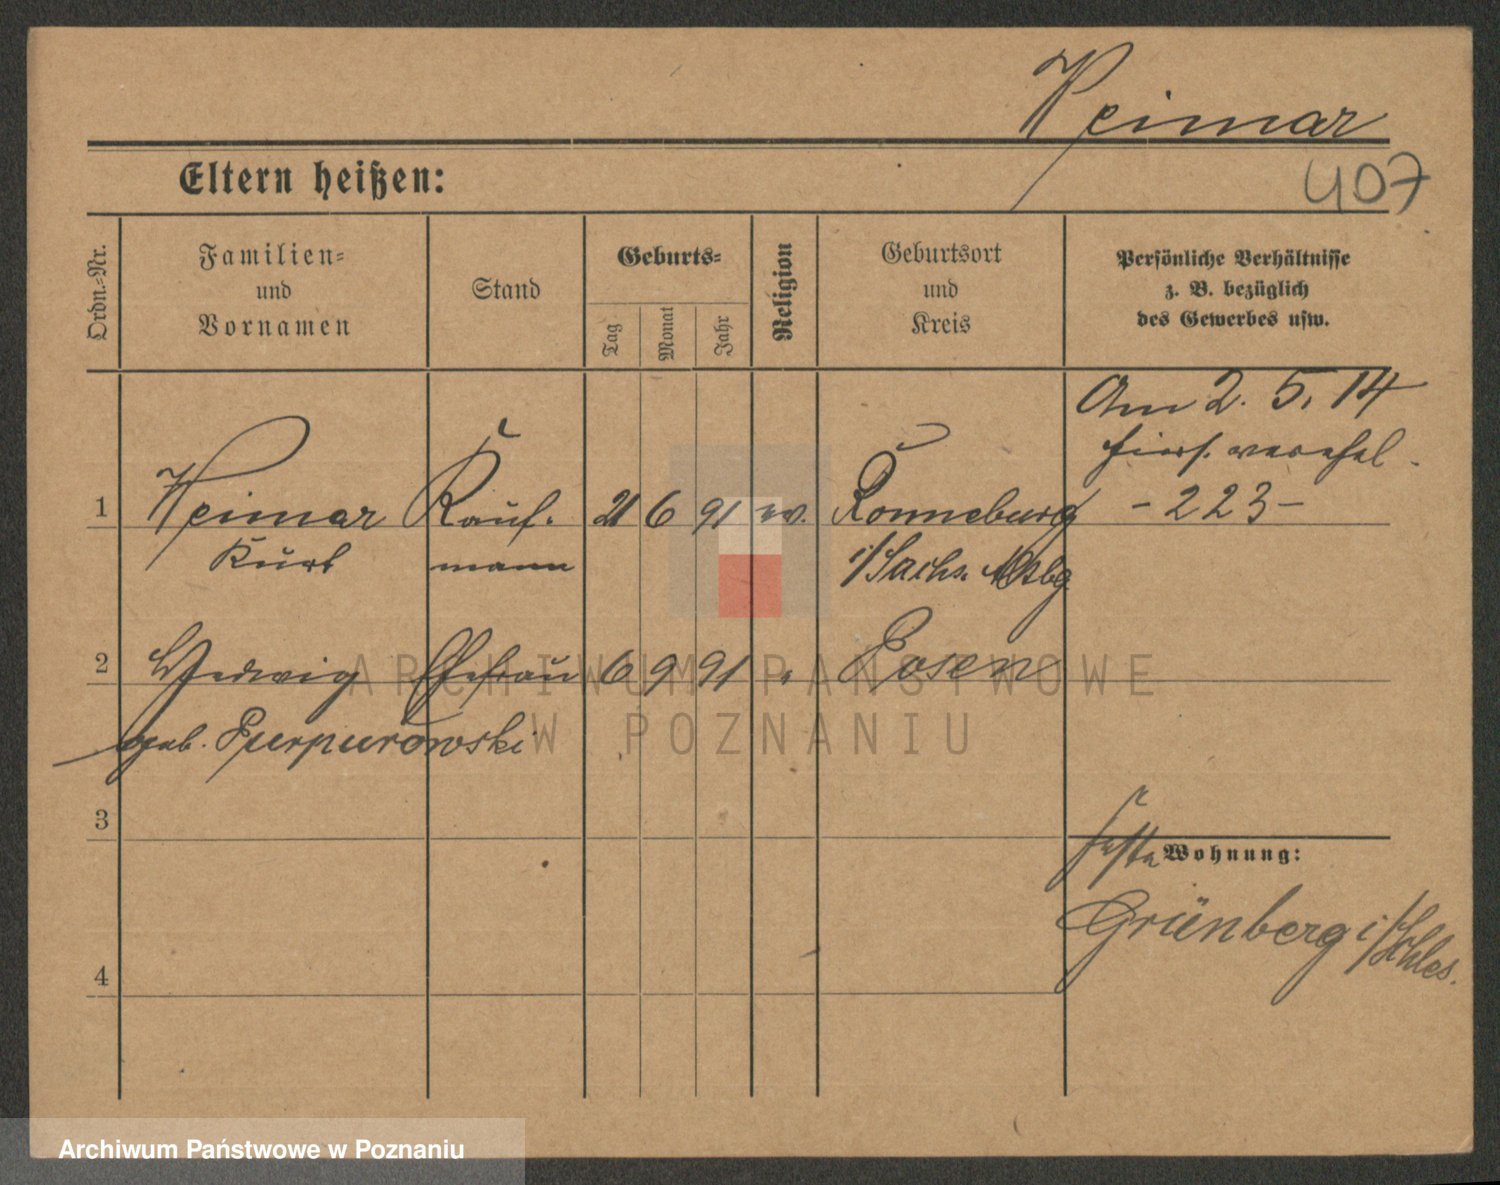 Weimar
407
Eltern heißen:
Ordn.-Nr.
Familien-
und
Vornamen
Stand
Geburts-
Tag
Monat
Jahr
Religion
Geburtsort
und
Kreis
Persönliche Verhältnisse
z. B. bezüglich
des Gewerbes usw.
Am 2. 5. 14
hiers. verehel.
- 223 -
1 Weimar Kauf- 21 6 91 ev. Ronneburg
Kurt mann i/Sachs. Altbg.
2 Hedwig Ehefrau 6 9 91 " Posen
geb. Purpurowski
3
feste Wohnung:
Grünberg i/Schles.
4
ARCHIWUM PAŃSTWOWE
W POZNANIU
Archiwum Państwowe w Poznaniu